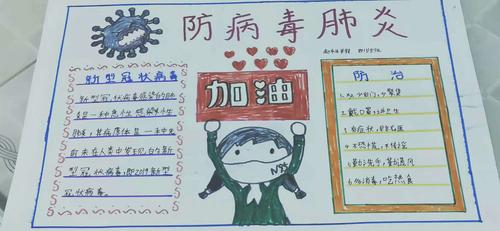 防病毒肺炎
新型冠状病毒
新型冠状病毒感染的肺
炎是一种急性感染性
肺炎,其病原体是一种
前未在人类中发现的新
型冠状病毒,即2019新型
冠状病毒。
加油
防治
1.少出门,少聚集
2.戴口罩,讲卫生
3.有症状,早就医
4.不恐慌,不传谣
5.勤洗手,勤通风
6.消毒,吃熟食